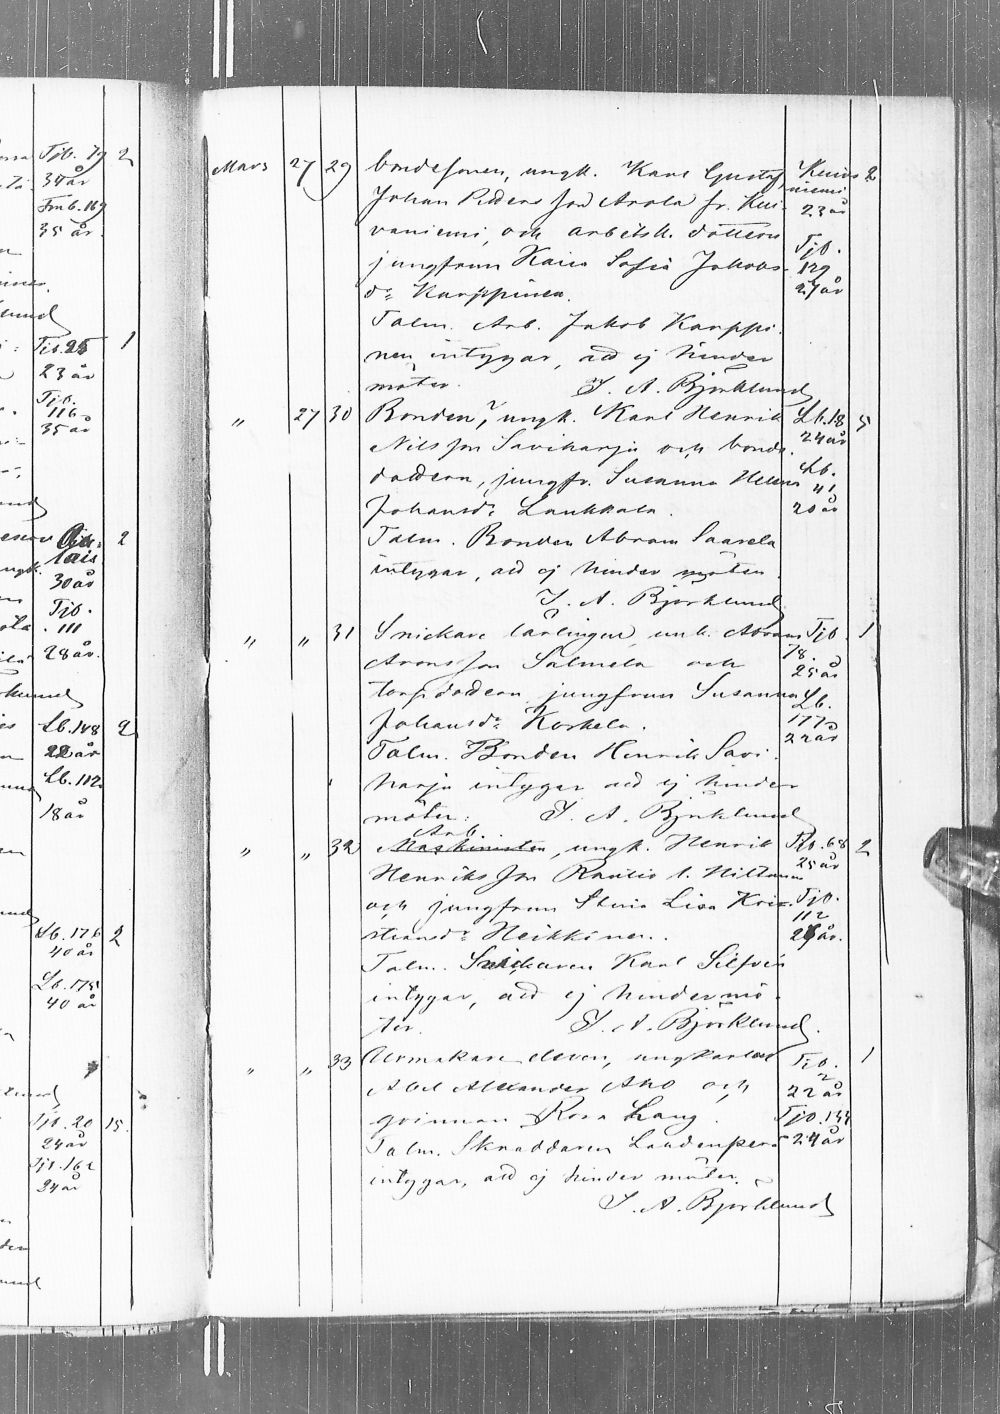 Tjb. 79 2
34 år
Fmb. 169
35 år
Tjb. 25 1
23 år
Tjb.
116
35 år
2
30 år
Tjb.
111
28 år
Lb. 148 2
22 år
Lb. 112
18 år
Lb. 176 2
40 år
Lb. 175
40 år
Tjb. 20 15
24 år
Tjb. 162
24 år
Mars 27 29 bondesonen, ungk. Karl Gustaf Kuiva 2
Johan Peders son Arola fr. Kui- niemi 23 år
vaniemi, och arbetsk. dottern Tjb.
jungfrun Kaisa Sofia Jakobs- 129
dr Karppinen. 27 år
Talm. Arb. Jakob Karppi-
nen intygar, att ej hinder
möter. J. A. Björklund
" 27 30 Bonden, ungk. Karl Henrik Lb. 18 5
Nilsson Saviharju och bonde- 24 år
dottern, jungfr. Susanna Helena Lb. 41
Johansdr Laukkala. 20 år
Talm. Bonden Abram Saarela
intygar, att ej hinder möter.
J. A. Björklund
" " 31 Snickare lärlingen, unk. Abram Tjb. 1
Aronsson Salmela och 78. 25 år
torpdottern jungfrun Susanna Lb.
Johansdr Korkela. 177
22 år
Talm. Bonden Henrik Savi-
harju intygar att ej hinder
möter. J. A. Björklund
Arb.
" " 32 Maskinisten, ungk. Henrik Tjb. 68 2
Henriksson Rautio l. Hiltunen 25 år
och jungfrun Stina Lisa Kris- Tjb.
tiansdr Heikkinen. 112
26 år.
Talm. Snickaren Karl Silfvén
intygar, att ej hinder mö-
ter. J. A. Björklund.
" " 33 Urmakare eleven, ungkarlen Tjb. 1
Abel Alexander Aho och 2
22 år
qvinnan Rosa Lang. Tjb. 144
Talm. Skraddaren Laudenperä 24 år
intygar, att ej hinder möter.
J. A. Björklund